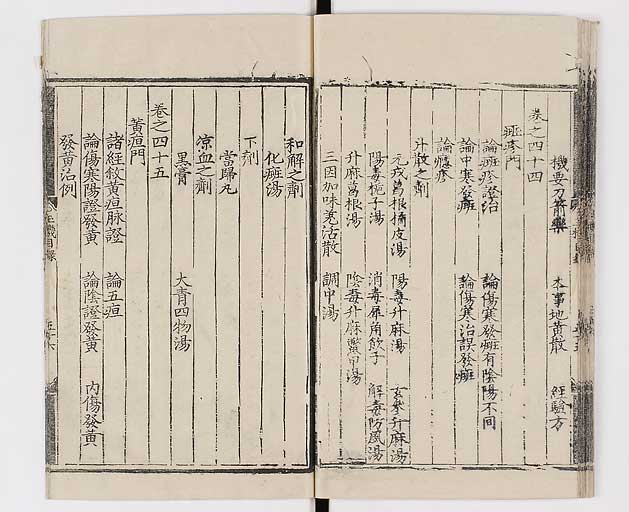 機要刀箭藥 本事地黃散 經驗方
卷之四十四
斑疹門
論斑疹證治 論傷寒發斑有陰陽不同
論中寒發斑 論傷寒治誤發斑
論癮疹
升散之劑
元戎葛根橘皮湯 陽毒升麻湯 玄參升麻湯
陽毒梔子湯 消毒犀角飮子 解毒防風湯
升麻葛根湯 陰毒升麻鱉甲湯
三因加味羌活散 調中湯
和解之劑
化斑湯
下劑
當歸丸
凉血之劑
黑膏 大靑四物湯
卷之四十五
黃疸門
諸經敘黃疸脉證 論五疸
論傷寒陽證發黃 論陰證發黃 內傷發黃
發黃治例